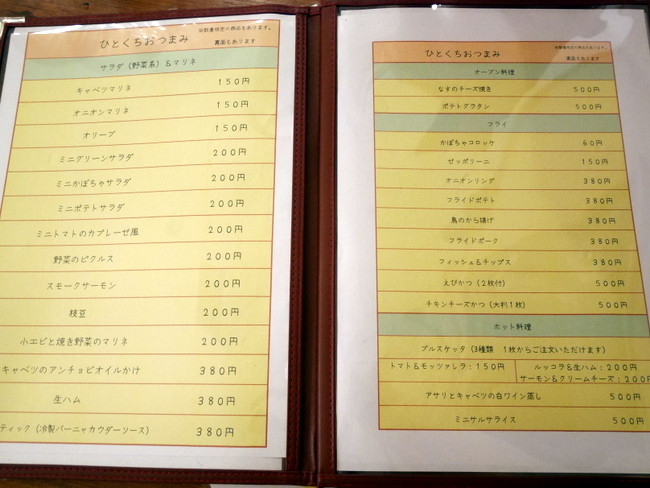 ひとくちおつまみ
※数量限定の商品もあります。
裏面もあります
サラダ(野菜系)&マリネ
キャベツマリネ 150円
オニオンマリネ 150円
オリーブ 150円
ミニグリーンサラダ 200円
ミニかぼちゃサラダ 200円
ミニポテトサラダ 200円
ミニトマトのカプレーゼ風 200円
野菜のピクルス 200円
スモークサーモン 200円
枝豆 200円
小エビと焼き野菜のマリネ 200円
キャベツのアンチョビオイルかけ 380円
生ハム 380円
ティック(冷製バーニャカウダーソース) 380円
ひとくちおつまみ
※数量限定の商品もあります。
裏面もあります
オーブン料理
なすのチーズ焼き 500円
ポテトグラタン 500円
フライ
かぼちゃコロッケ 60円
ゼッポリーニ 150円
オニオンリング 380円
フライドポテト 380円
鳥のから揚げ 380円
フライドポーク 380円
フィッシュ&チップス 380円
えびかつ(2枚付) 500円
チキンチーズかつ(大判1枚) 500円
ホット料理
ブルスケッタ(3種類 1枚からご注文いただけます)
トマト&モッツァレラ:150円 ルッコラ&生ハム:200円
サーモン&クリームチーズ:200円
アサリとキャベツの白ワイン蒸し 500円
ミニサルサライス 500円